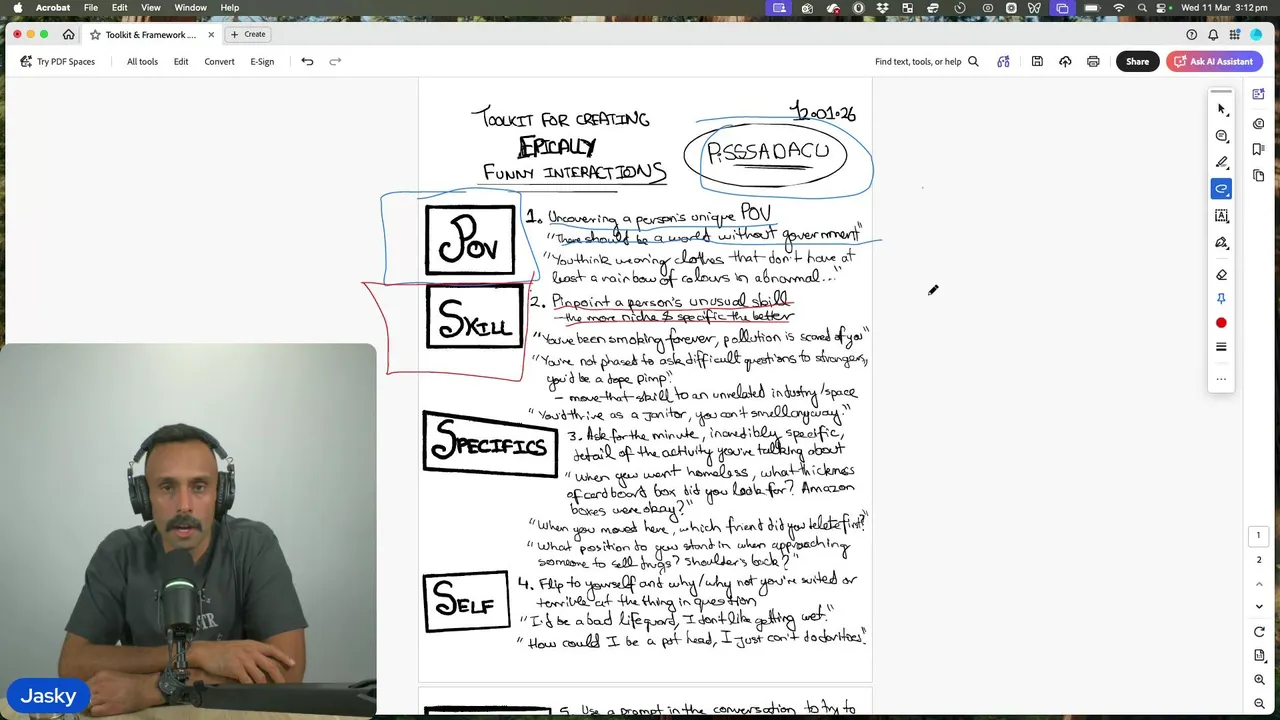 Acrobat File Edit View Window Help
Wed 11 Mar 3:12 pm
Toolkit & Framework ....
Create
Try PDF Spaces
All tools
Edit
Convert
E-Sign
Find text, tools, or help
Share
Ask AI Assistant
TOOLKIT FOR CREATING
EPICALLY
FUNNY INTERACTIONS
12.01.26
P.SSSADACU
POV
1. Uncovering a person's unique POV
"There should be a world without government"
"You think wearing clothes that don't have at
least a rainbow of colours in abnormal..."
SKILL
2. Pinpoint a person's unusual skill
- the more niche & specific the better
"You've been smoking forever, pollution is scared of you"
"You're not phased to ask difficult questions to strangers,
you'd be a dope pimp."
- move that skill to an unrelated industry/space
"You'd thrive as a janitor, you can't smell anyway."
SPECIFICS
3. Ask for the minute, incredibly specific,
detail of the activity you're talking about
"When you went homeless, what thickness
of cardboard box did you look for? Amazon
boxes were okay?"
"When you moved here, which friend did you delete first?"
"What position do you stand in when approaching
someone to sell drugs? Shoulders back?"
SELF
4. Flip to yourself and why/why not you're suited or
terrible at the thing in question
"I'd be a bad lifeguard, I don't like getting wet."
"How could I be a pot head, I just can't do dorities!"
5. Use a prompt in the conversation to try to
1
2
Jasky